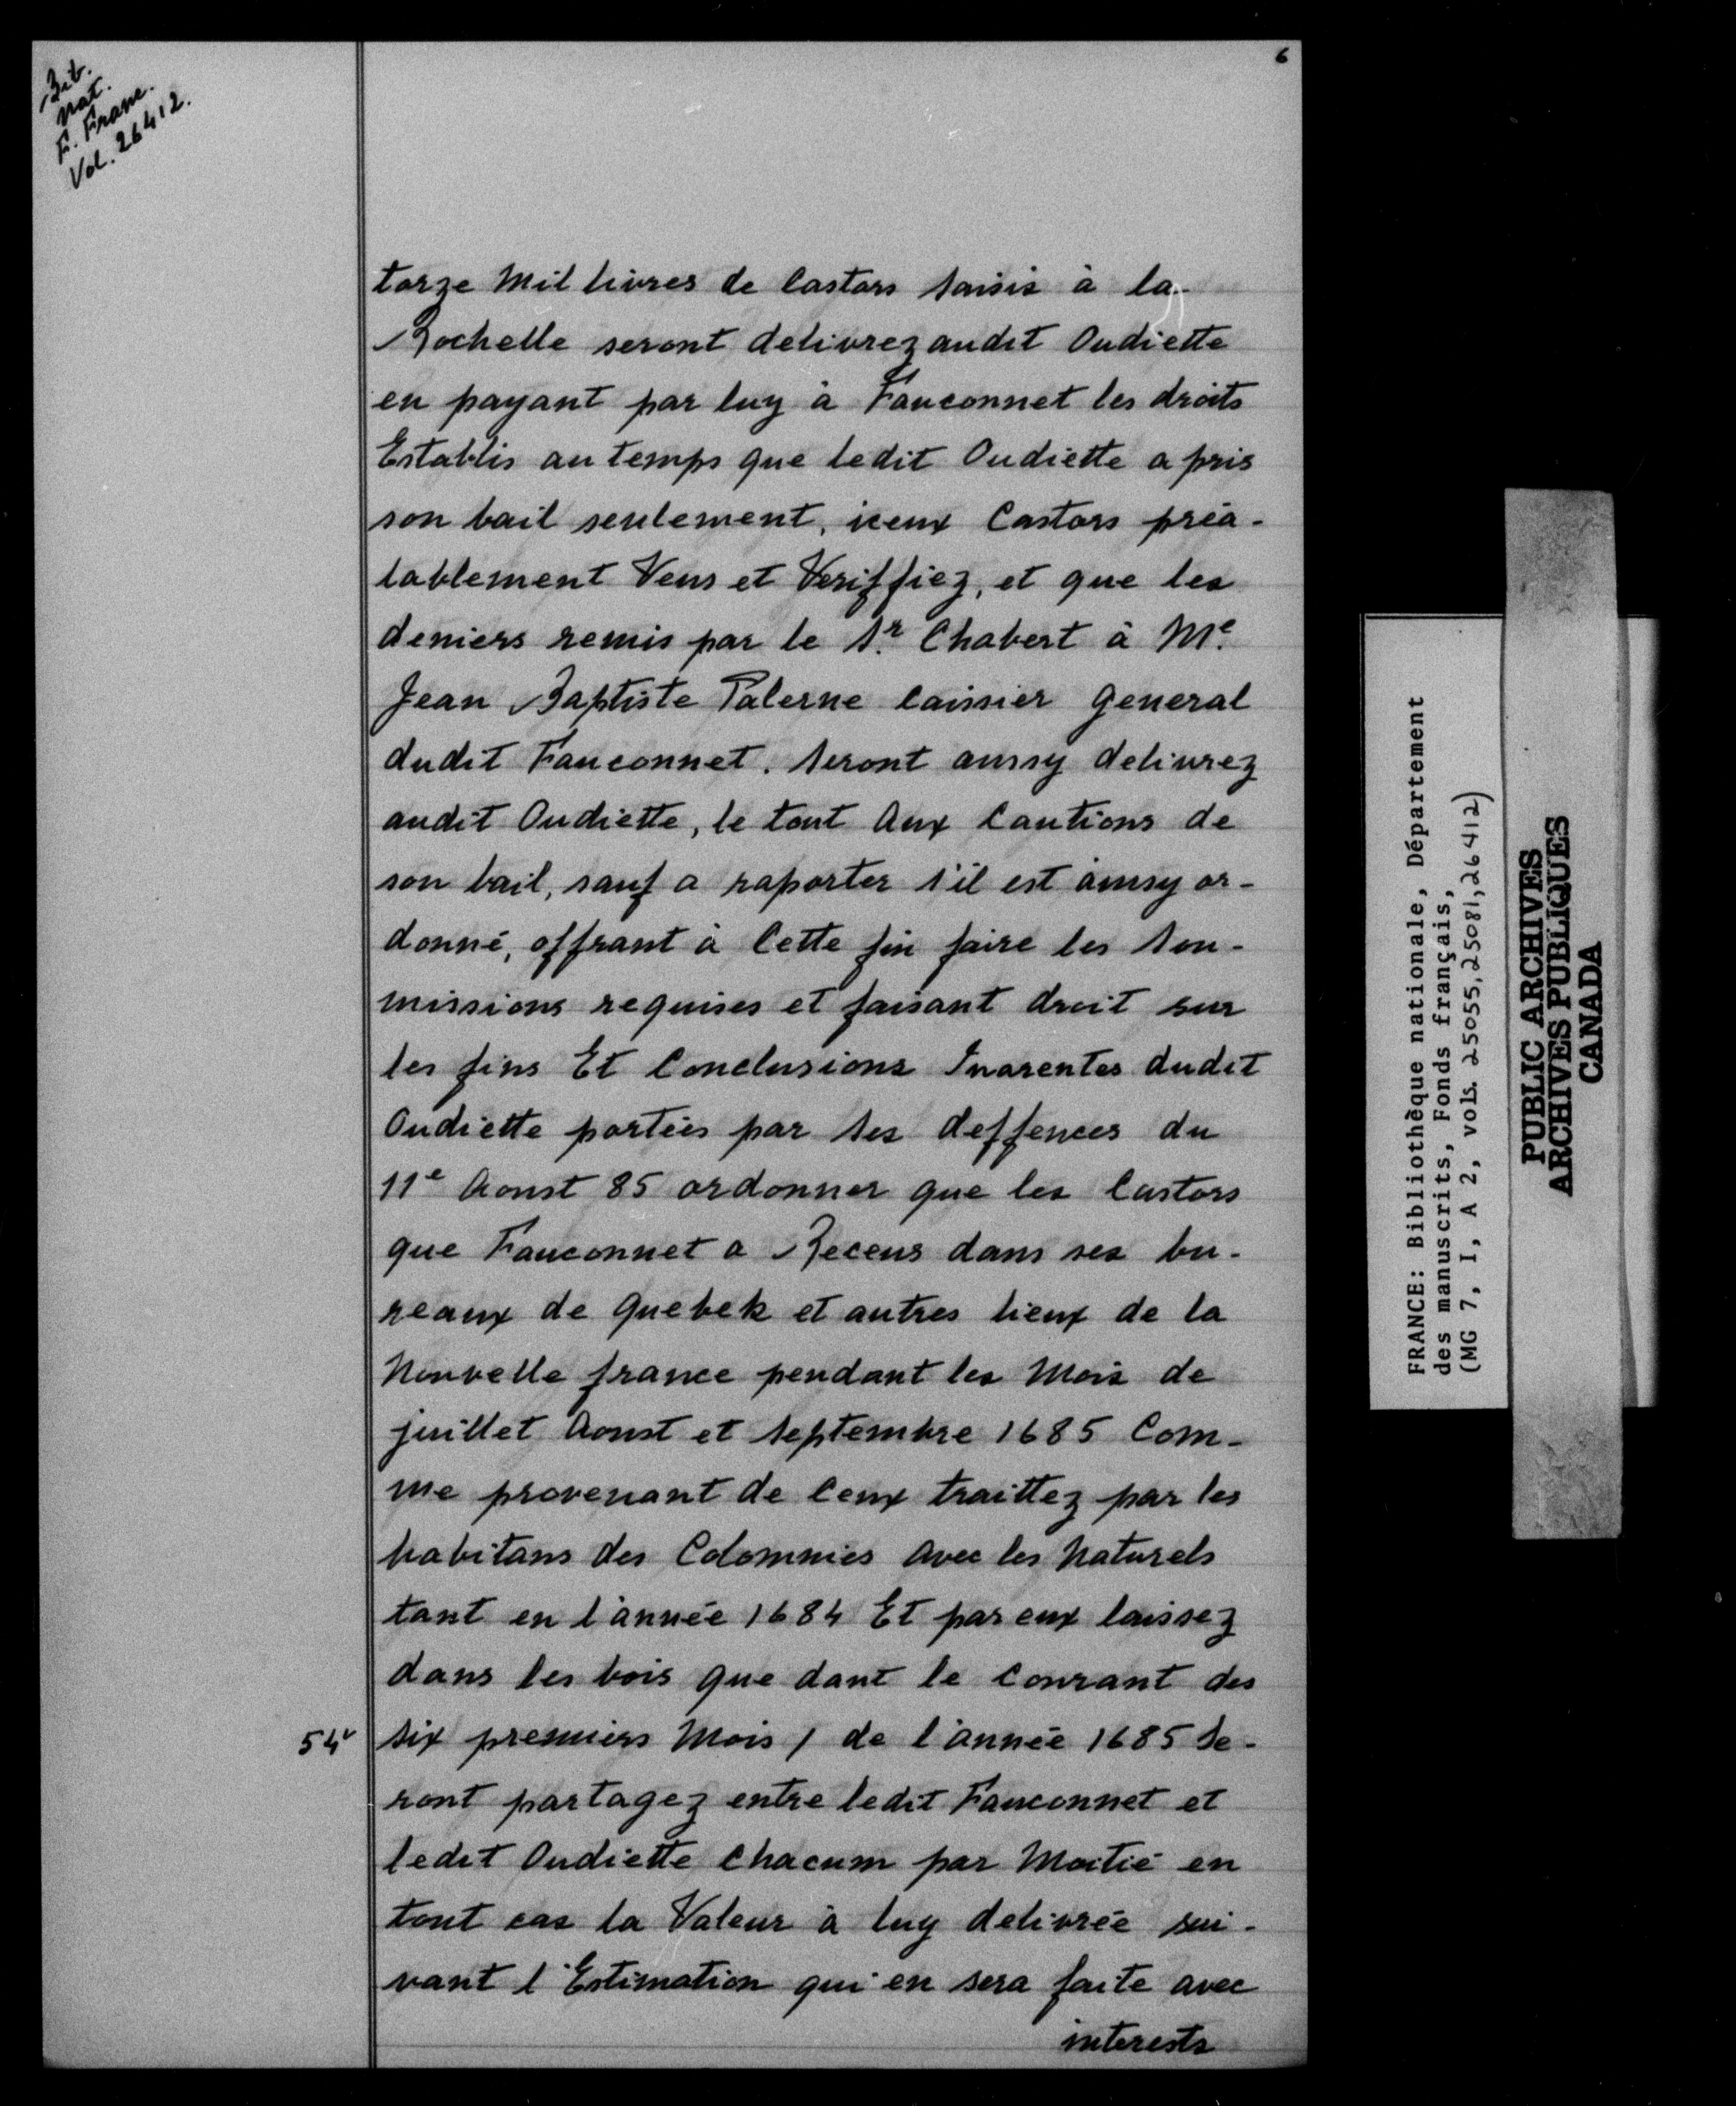 Bib.
nat.
F. Franc.
Vol. 26412.
6
torze Mil livres de Castors saisis à la
Rochelle seront delivrez audit Oudiette
en payant par luy à Fauconnet les droits
Establis au temps que ledit Oudiette a pris
son bail seulement, iceux Castors préa-
lablement Veus et Veriffiez, et que les
deniers remis par le Sr. Chabert à Me.
Jean Baptiste Palerne Caissier general
dudit Fauconnet. Seront aussy delivrez
audit Oudiette, le tout Aux Cautions de
son bail, sauf a raporter s'il est ainsy or-
donné, offrant à Cette fin faire les Sou-
missions requises et faisant droit sur
les fins Et Conclusions Inarentes dudit
Oudiette portées par ses deffences du
11e Aoust 85 ordonner que les Castors
que Fauconnet a Receus dans ses bu-
reaux de Quebek et autres lieux de la
Nouvelle france pendant les Mois de
juillet Aoust et Septembre 1685 Com-
me provenant de Ceux traittez par les
habitans des Colommies Avec les Naturels
tant en l'année 1684 Et par eux laissez
dans les bois que dant le Courant des
54v six premiers Mois / de l'année 1685 Se-
ront partagez entre ledit Fauconnet et
ledit Oudiette Chacum par Moitié en
tout cas la Valeur à luy delivrée sui-
vant l'Estimation qui en sera faite avec
interests
FRANCE: Bibliothèque nationale, Département
des manuscrits, Fonds français,
(MG 7, I, A 2, vols. 25055, 25081, 26412)
PUBLIC ARCHIVES
ARCHIVES PUBLIQUES
CANADA